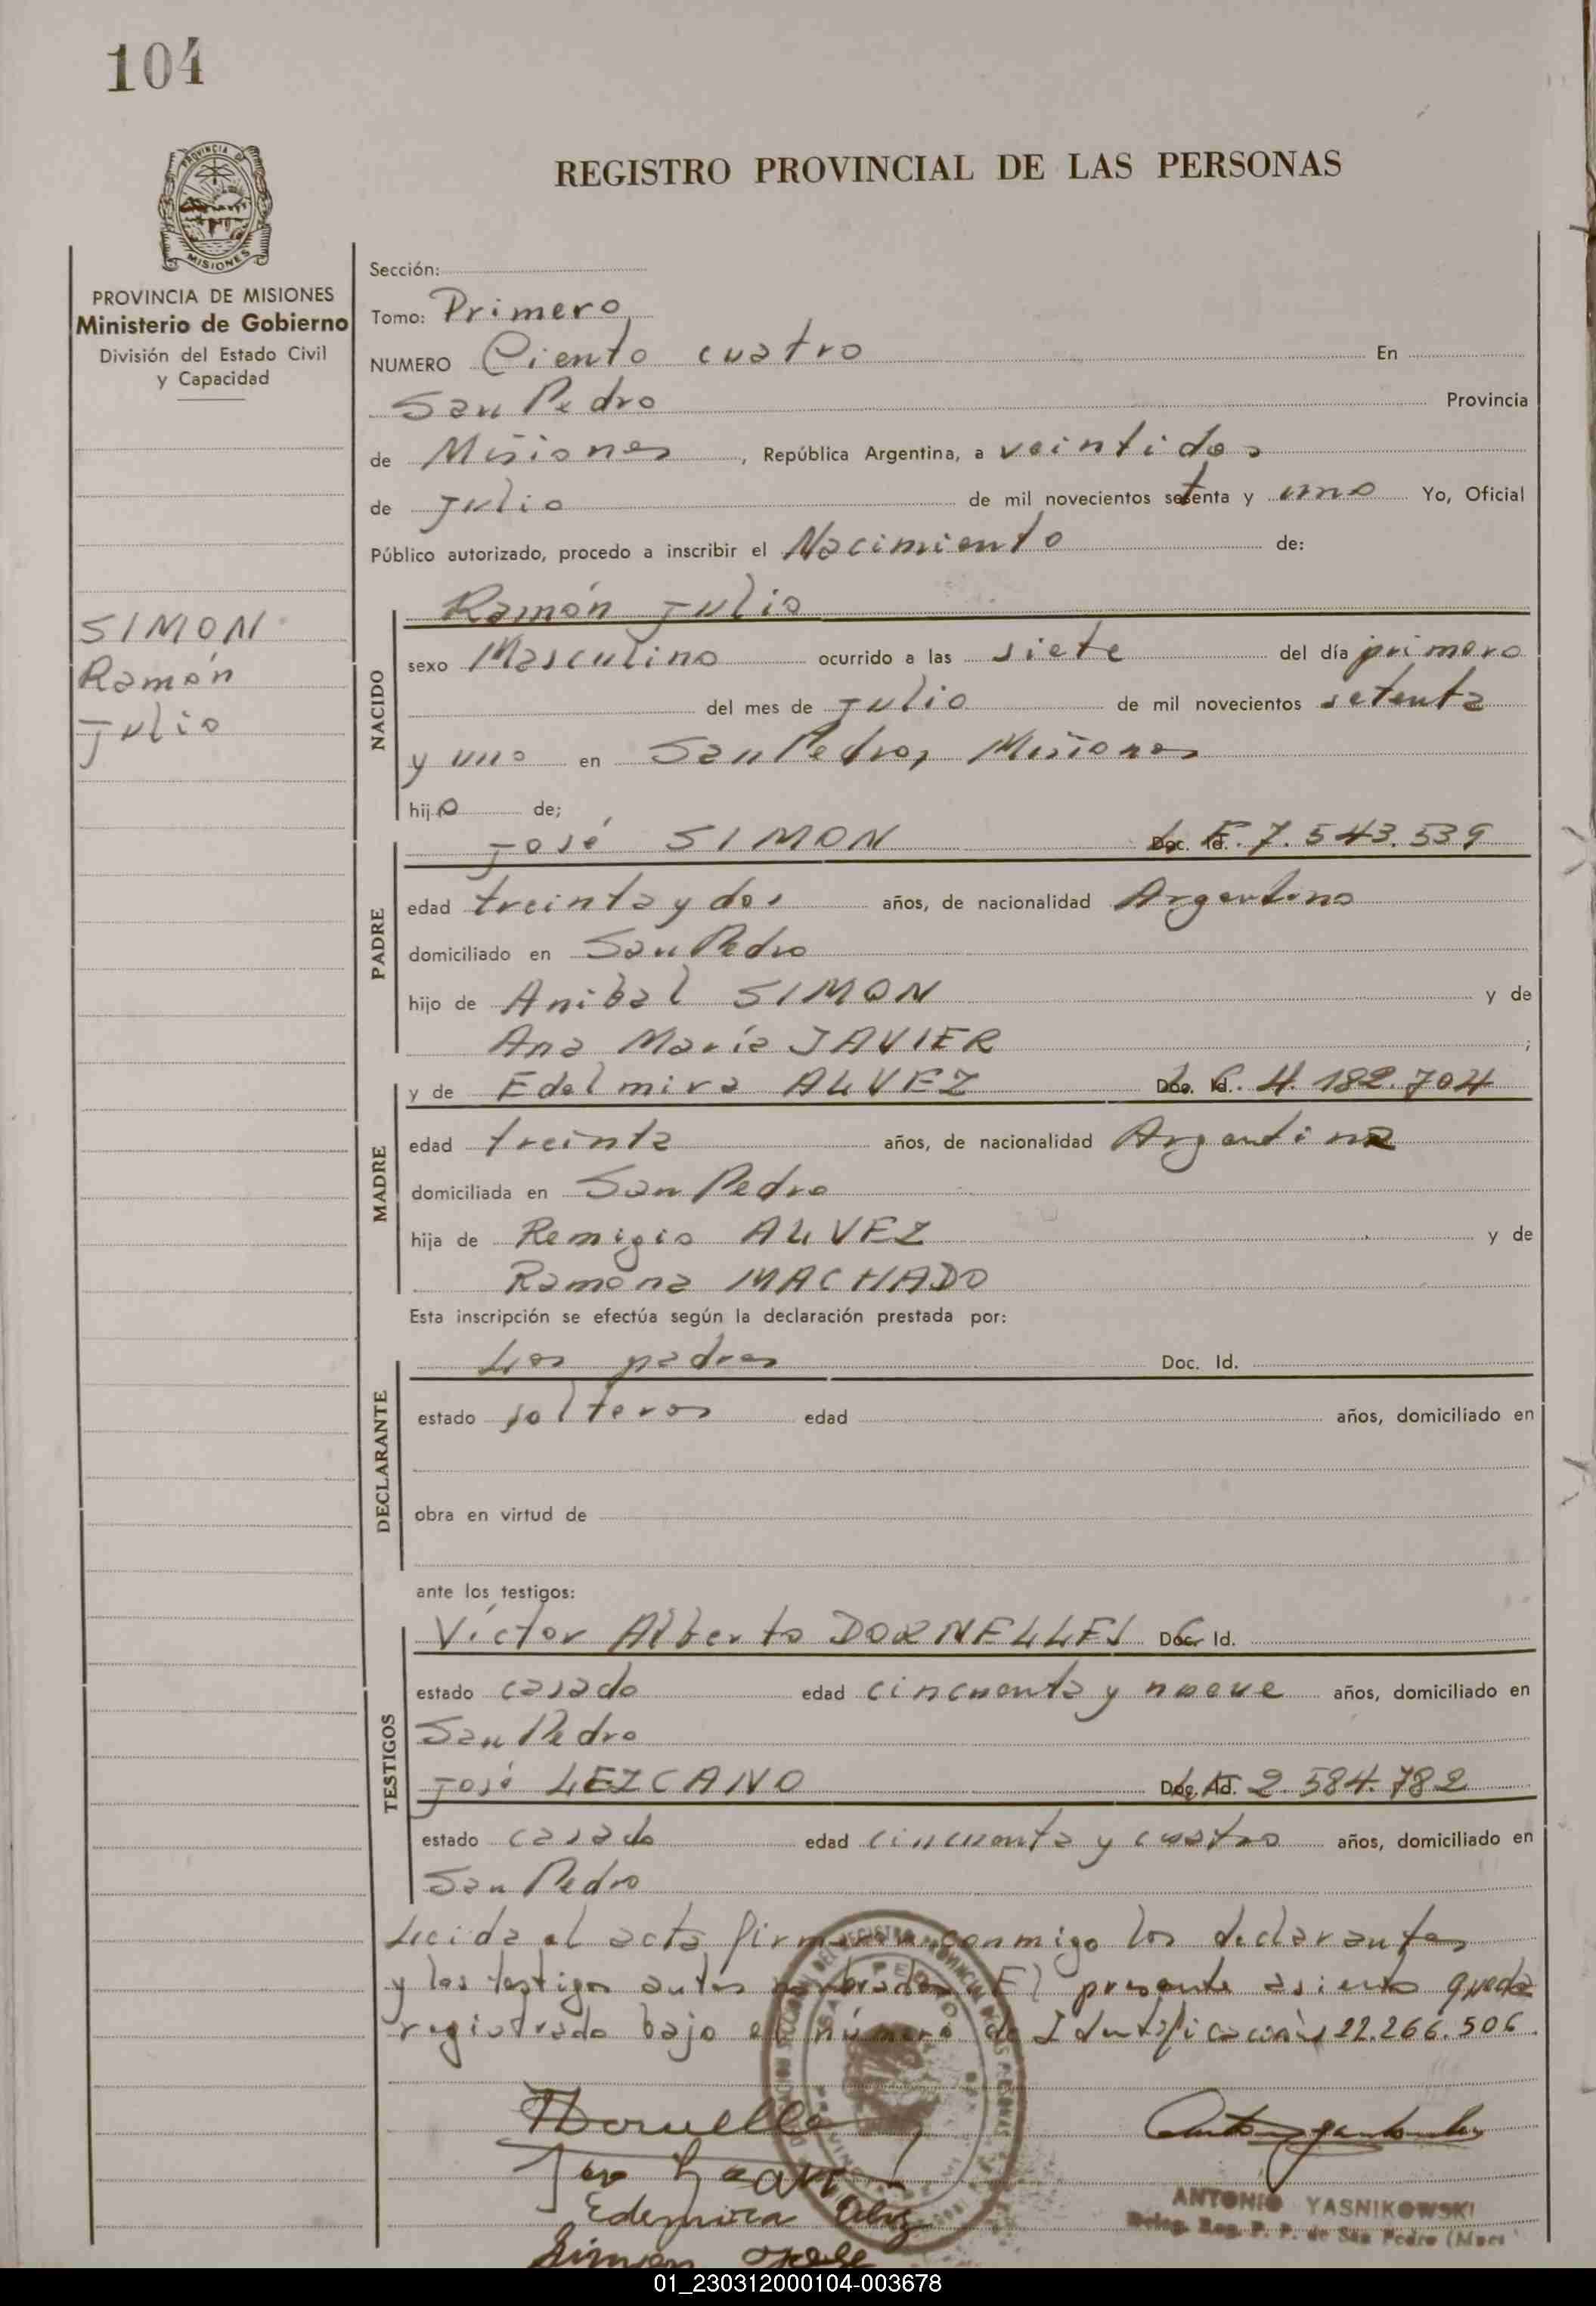 104
REGISTRO PROVINCIAL DE LAS PERSONAS
PROVINCIA DE MISIONES
Ministerio de Gobierno
División del Estado Civil
y Capacidad
SIMON
Ramón
Julio
Sección:
Tomo: Primero
NUMERO Ciento cuatro En
San Pedro Provincia
de Misiones, República Argentina, a veintidos
de Julio de mil novecientos setenta y uno Yo, Oficial
Público autorizado, procedo a inscribir el Nacimiento de:
Ramón Julio
NACIDO
sexo Masculino ocurrido a las siete del día primero
del mes de Julio de mil novecientos setenta
y uno en San Pedro, Misiones
hijo de;
José SIMON Doc. Id. 7.543.539
PADRE
edad treinta y dos años, de nacionalidad Argentino
domiciliado en San Pedro
hijo de Anibal SIMON y de
Ana María JAVIER ;
y de Edelmira ALVEZ Doc. Id. 4.182.704
MADRE
edad treinta años, de nacionalidad Argentina
domiciliada en San Pedro
hija de Remigio ALVEZ y de
Ramona MACHADO
Esta inscripción se efectúa según la declaración prestada por:
Los padres Doc. Id.
DECLARANTE
estado solteros edad años, domiciliado en
obra en virtud de
ante los testigos:
Víctor Alberto DORNELLES Doc. Id.
TESTIGOS
estado casado edad cincuenta y nueve años, domiciliado en
San Pedro
José LEZCANO Doc. Id. 2.584.782
estado casado edad cincuenta y cuatro años, domiciliado en
San Pedro
Leida el acta firmaron conmigo los declarantes
y los testigos antes nombrados. El presente asiento queda
registrado bajo el número de Identificación 22.266.506.
Edemira
Simon Jose
ANTONIO YASNIKOWSKI
Deleg. Reg. P. P. de San Pedro (Mnes
01_230312000104-003678